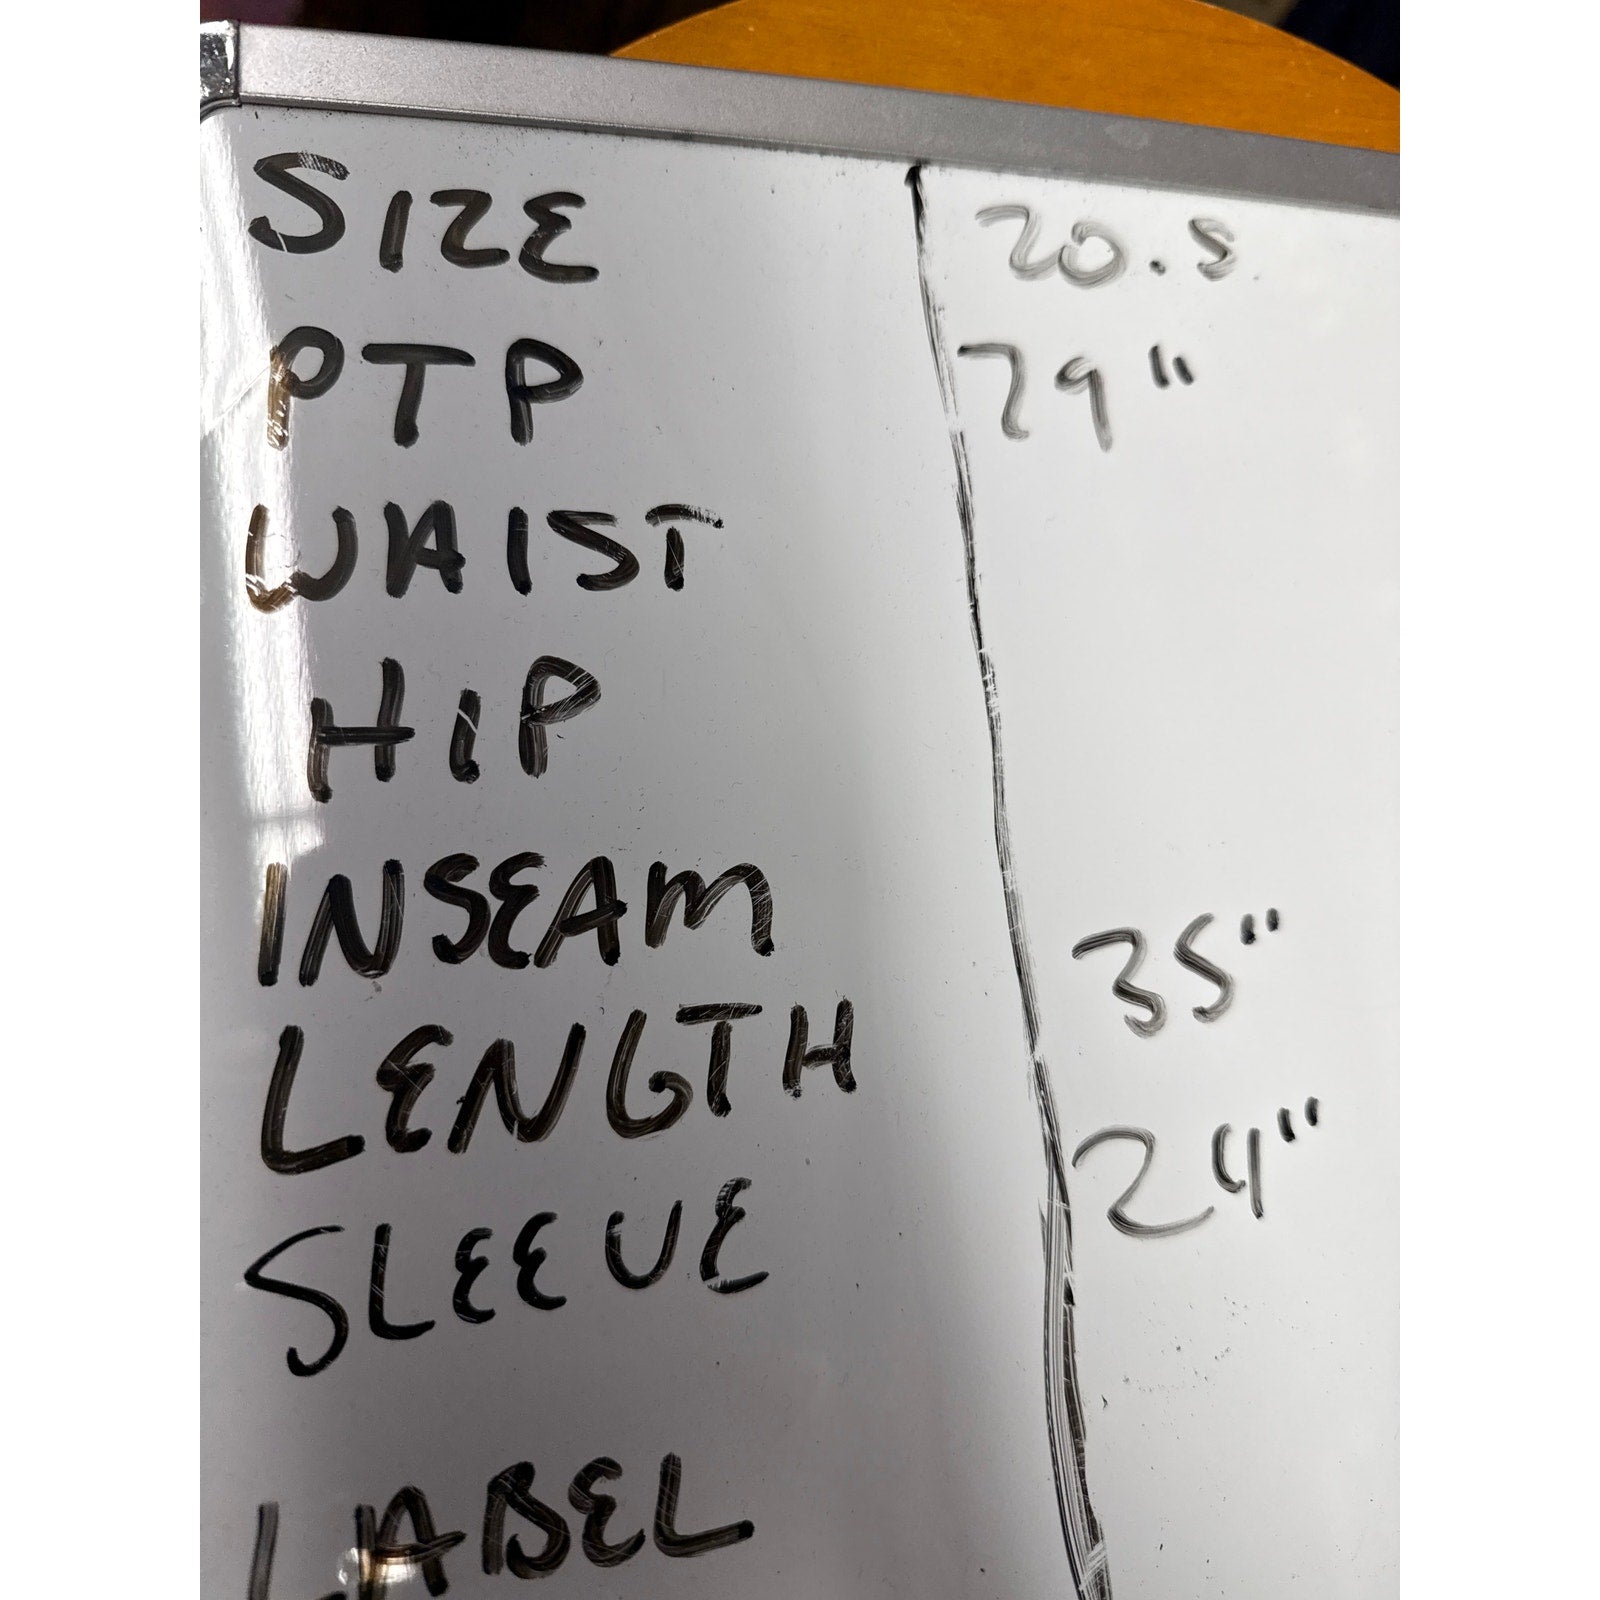 SIZE 20.5
PTP 29"
WAIST
HIP
INSEAM 35"
LENGTH
SLEEVE 24"
LABEL